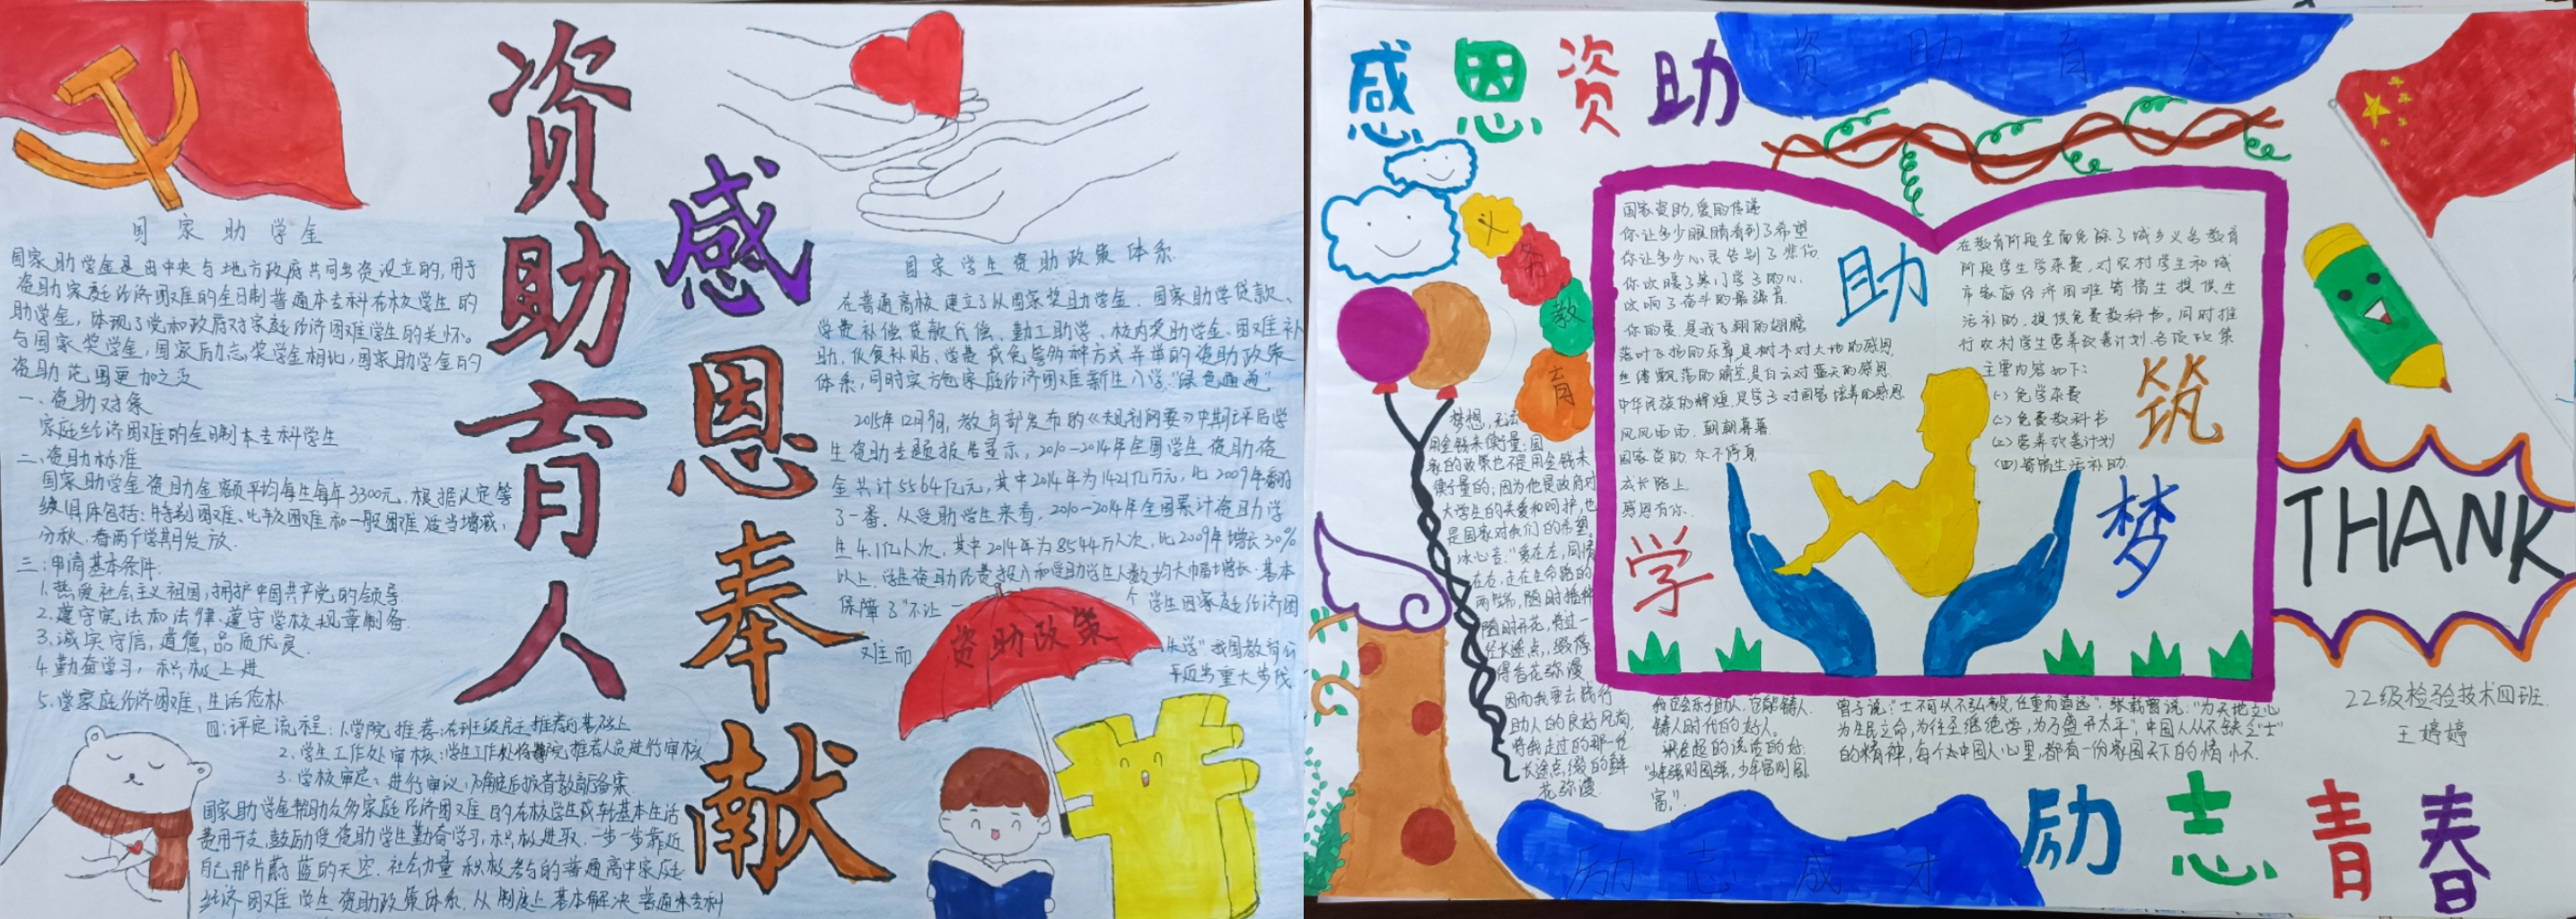 资助育人
感恩奉献
国家助学金
国家助学金是由中央与地方政府共同出资设立的,用于
资助家庭经济困难的全日制普通本专科在校学生的
助学金,体现了党和政府对家庭经济困难学生的关怀。
与国家奖学金,国家励志奖学金相比,国家助学金的
资助范围更加之广
一、资助对象
家庭经济困难的全日制本专科学生
二、资助标准
国家助学金资助金额平均每生每年3300元,根据认定等
级具体包括:特别困难、比较困难和一般困难适当增减,
分秋、春两个学期发放.
三:申请基本条件:
1.热爱社会主义祖国,拥护中国共产党的领导
2.遵守宪法和法律、遵守学校规章制备.
3.诚实守信,道德,品质优良.
4.勤奋学习,积极上进
5.学家庭经济困难,生活俭朴.
四:评定流程:1.学院推荐:在班级民主推荐的基础上
2.学生工作处审核:学生工作处将学院推荐人员进行审核
3.学校审定:进行审议,
国家助学金帮助众多家庭经济困难的在校学生或轻基本生活
费用开支,鼓励受资助学生勤奋学习,积极进取.一步一步靠近
自己那片蔚蓝的天空.社会力量积极参与的普通高中家庭
经济困难学生资助政策体系,从制度上基本解决普通本专科
国家学生资助政策体系
在普通高校建立了从国家奖助学金、国家助学贷款、
学费补偿贷款代偿、勤工助学、校内奖助学金、困难补
助、伙食补贴、学费减免等多种方式并举的资助政策
体系,同时实施家庭经济困难新生入学"绿色通道"
2015年12月9日,教育部发布的《规划纲要》中期评估学
生资助专题报告显示,2010—2014年全国学生资助资
金共计5564亿元,其中2014年为1421亿万元,比2009年翻
了一番.从受助学生来看,2010-2014年全国累计资助学
生4.1亿人次,其中2014年为8544万人次,比2009年增长30%
以上.学生资助经费投入和受助学生人数均大幅增长.基本
保障了"不让一个学生因家庭经济困
难而失学"我国教育公
平迈出重大步伐
资助政策
感恩资助
资助育人
义务教育
国家资助,爱的传递
你让多少眼睛看到了希望
你让多少心灵告别了悲伤
你吹暖了寒门学子的心.
吹响了奋斗的最强音
你的爱是我飞翔的翅膀
落叶飞扬的乐章是树木对大地的感恩
丝绪飘荡的晴空是白云对蓝天的感恩
中华民族的辉煌,是学子对国家培养的感恩
风风雨雨,朝朝暮暮.
国家资助,永不停息
成长路上.
感恩有你.
助
学
筑
梦
在教育阶段全面免除了城乡义务教育
阶段学生学杂费,对农村学生和城
市家庭经济困难寄宿生提供生
活补助,提供免费教科书.同时推
行农村学生营养改善计划.各项政策
主要内容如下:
(一)免学杂费
(二)免费教科书
(三)营养改善计划
(四)寄宿生活补助.
梦想,无法
用金钱来衡量;国
家的政策也不是用金钱来
衡量的;因为他是政府对
大学生的关爱和呵护,也
是国家对我们的希望.
冰心言:"爱在左,同情
在右,走在生命路的
两旁,随时播种
随时开花,将这一
径长途点,缀得
得香花弥漫
因而我要去践行
助人的良好风尚,
将我走过的那一径
长途点缀的鲜
花弥漫.
铸人时代的好人.
梁启超的说the好:
"少年强则国强,少年富则国
富,".
曾子说:"士不可以不弘毅,任重而道远".张载曾说:"为天地立心
为生民立命,为往圣继绝学,为万盛开太平";中国人从不缺乏"士"
的精神,每个中国人心里,都有一份家国天下的情怀.
THANK
22级检验技术四班
王婷婷
励志成才
励志青春